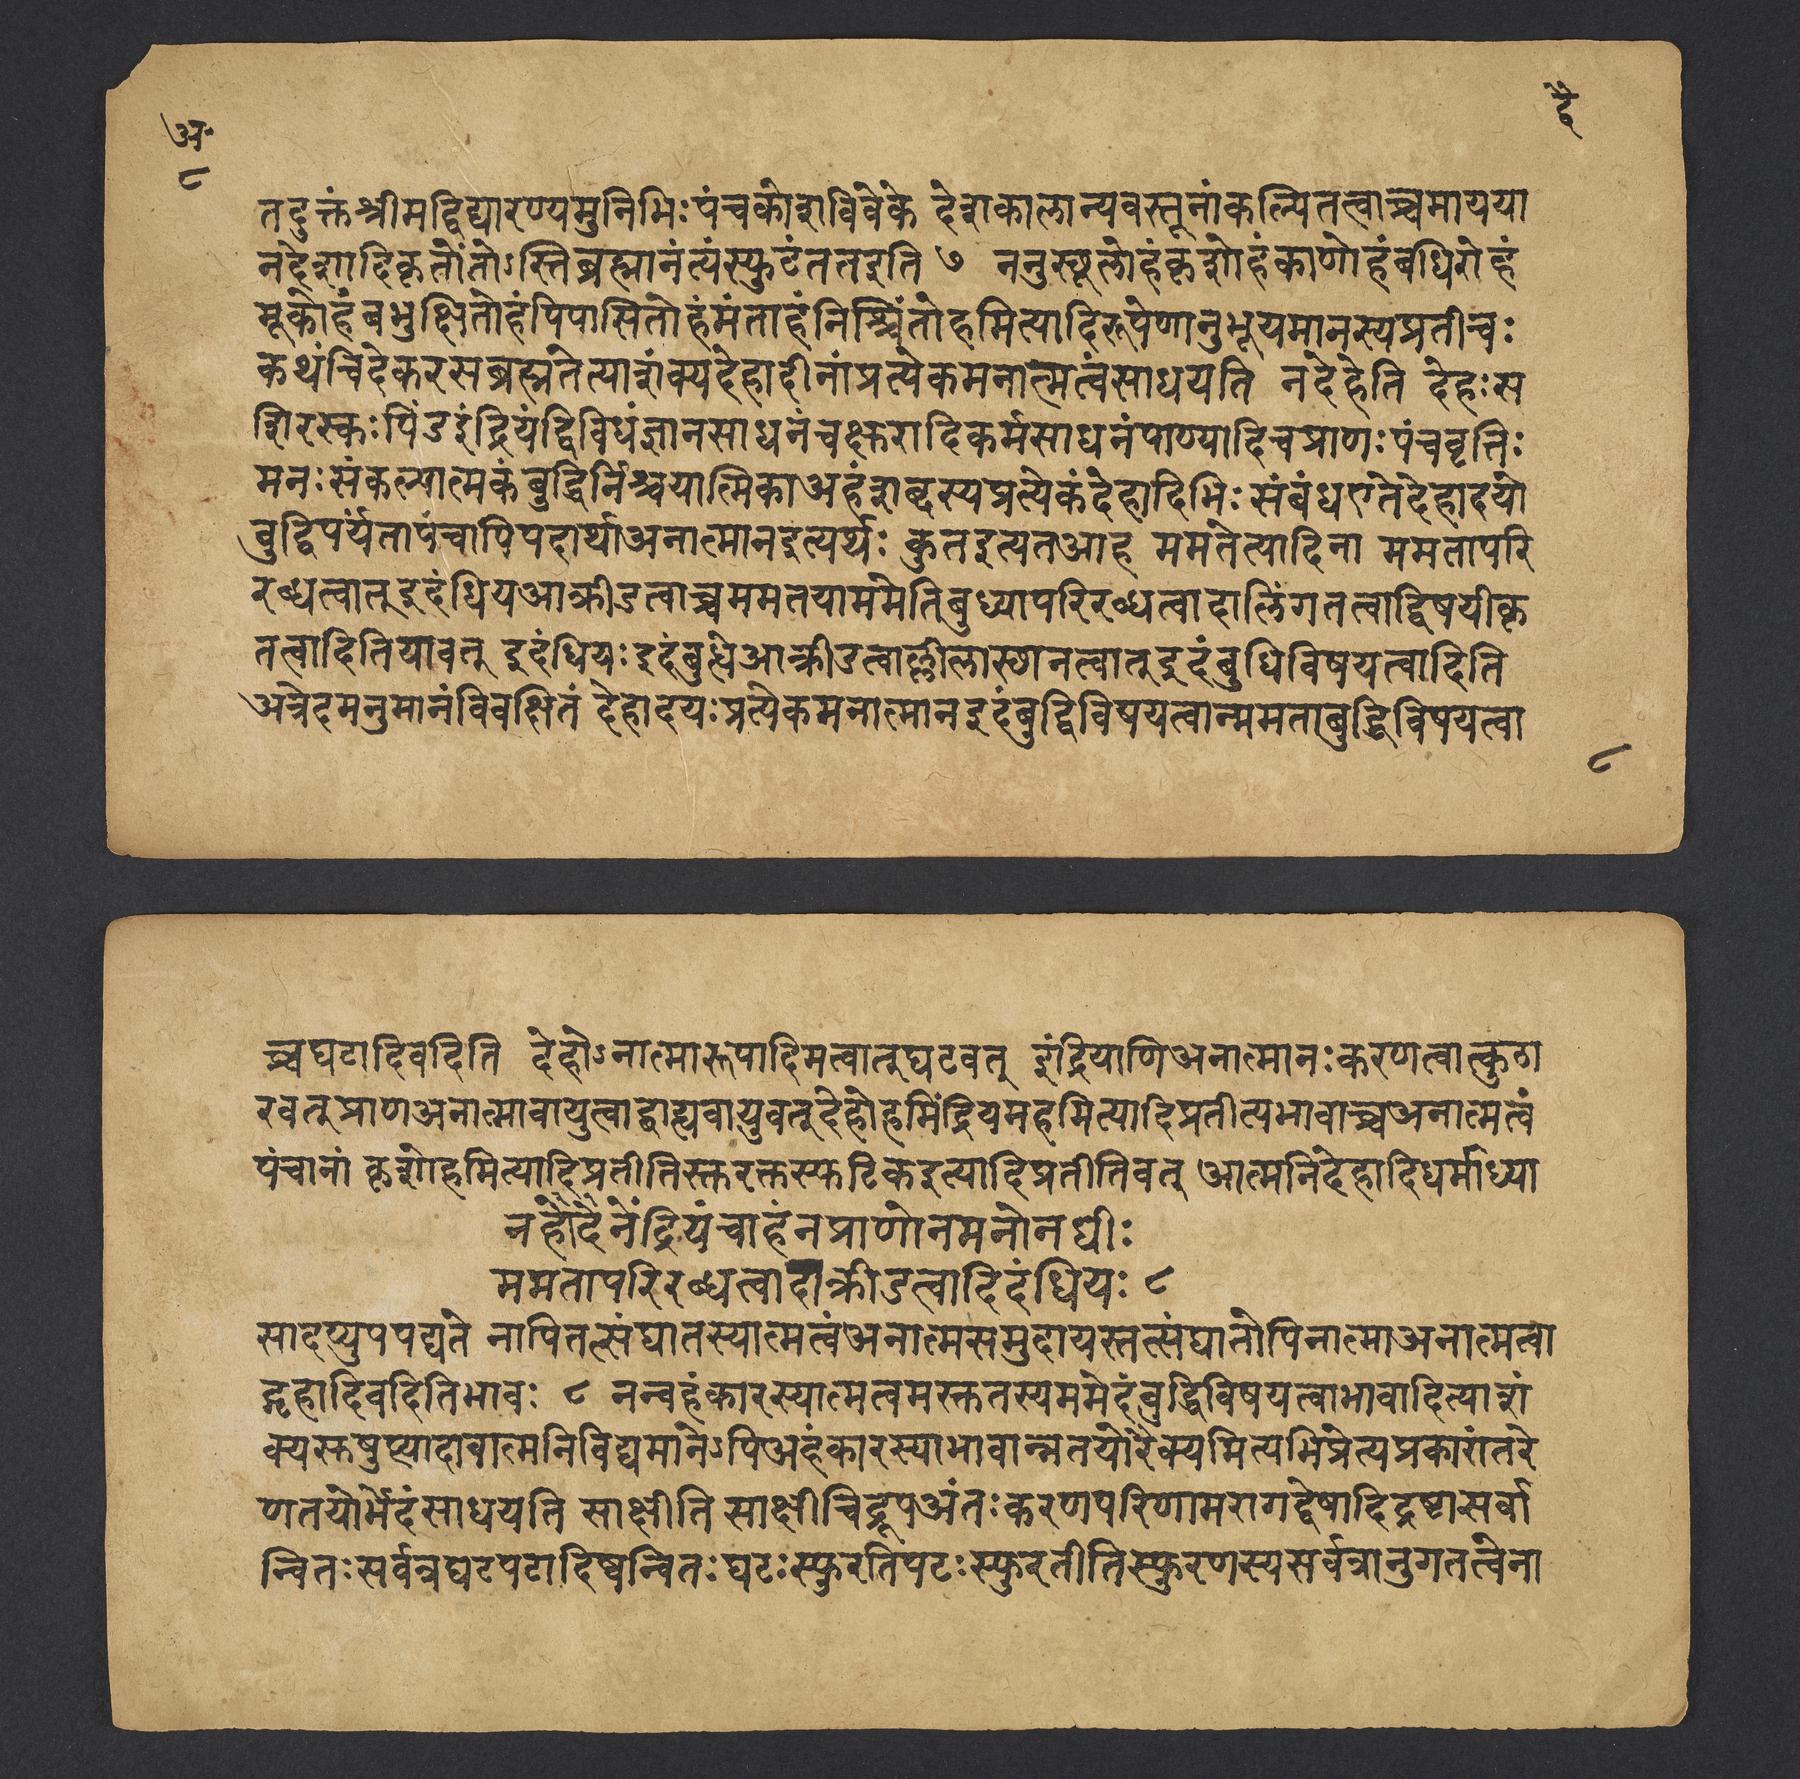 अ॰
८
द्वै
तदुक्तंश्रीमद्विद्यारण्यमुनिभिःपंचकोशविवेके देशकालान्यवस्तूनांकल्पितत्वाच्चमायया
नदेशादिकृतोंतोऽस्तिब्रह्मानंत्यंस्फुटंततइति ७ ननुस्थूलोहंकृशोहंकाणोहंबधिरोहं
मूकोहंबभुक्षितोहंपिपासितोहंमंताहंनिश्चिंतोहमित्यादिरूपेणानुभूयमानस्यप्रतीचः
कथंचिदेकरसब्रह्मतेत्याशंक्यदेहादीनांप्रत्येकमनात्मत्वंसाधयति नदेहेति देहःस
शिरस्कःपिंडइंद्रियंद्विविधंज्ञानसाधनंचक्षुरादिकर्मसाधनंपाण्यादिचप्राणःपंचवृत्तिः
मनःसंकल्पात्मकंबुद्धिर्निश्चयात्मिकाअहंशब्दस्यप्रत्येकंदेहादिभिःसंबंधएतेदेहादयो
बुद्धिपर्यंतापंचापिपदार्थाअनात्मानइत्यर्थः कुतइत्यतआह ममतेत्यादिना ममतापरि
रब्धत्वात्इदंधियआक्रीडत्वाच्चममतयाममेतिबुध्यापरिरब्धत्वादालिंगतत्वाद्विषयीकृ
तत्वादितियावत् इदंधियःइदंबुधेआक्रीडत्वाल्लीलास्थानत्वात्इदंबुधिविषयत्वादिति
अत्रेदमनुमानंविवक्षितं देहादयःप्रत्येकमनात्मानइदंबुद्धिविषयत्वान्ममताबुद्धिविषयत्वा
८
च्चघटादिवदिति देहोऽनात्मारूपादिमत्वात्घटवत् इंद्रियाणिअनात्मानःकरणत्वात्कुठा
रवत्प्राणअनात्मावायुत्वाद्बाह्यवायुवत्देहोहमिंद्रियमहमित्यादिप्रतीत्यभावाच्चअनात्मत्वं
पंचानां कृशोहमित्यादिप्रतीतिस्तुरक्तस्फटिकइत्यादिप्रतीतिवत् आत्मनिदेहादिधर्माध्या
नहोदेनेंद्रियंचाहंनप्राणोनमनोनधीः
ममतापरिरब्धत्वादाक्रीडत्वादिदंधियः ८
सादप्युपपद्यते नापितत्संघातस्यात्मत्वंअनात्मसमुदायस्तत्संघातोपिनात्माअनात्मत्वा
द्गृहादिवदितिभावः ८ नन्वहंकारस्यात्मत्वमस्तुतस्यममेदंबुद्धिविषयत्वाभावादित्याशं
क्यसुषुप्त्यादावात्मनिविद्यमानेऽपिअहंकारस्याभावान्नतयोरैक्यमित्यभिप्रेत्यप्रकारांतरे
णतयोर्भेदंसाधयति साक्षीति साक्षीचिद्रूपअंतःकरणपरिणामरागद्वेषादिद्रष्टासर्वा
न्वितःसर्वत्रघटपटादिष्वन्वितःघटःस्फुरतिपटःस्फुरतीतिस्फुरणस्यसर्वत्रानुगतत्वेना